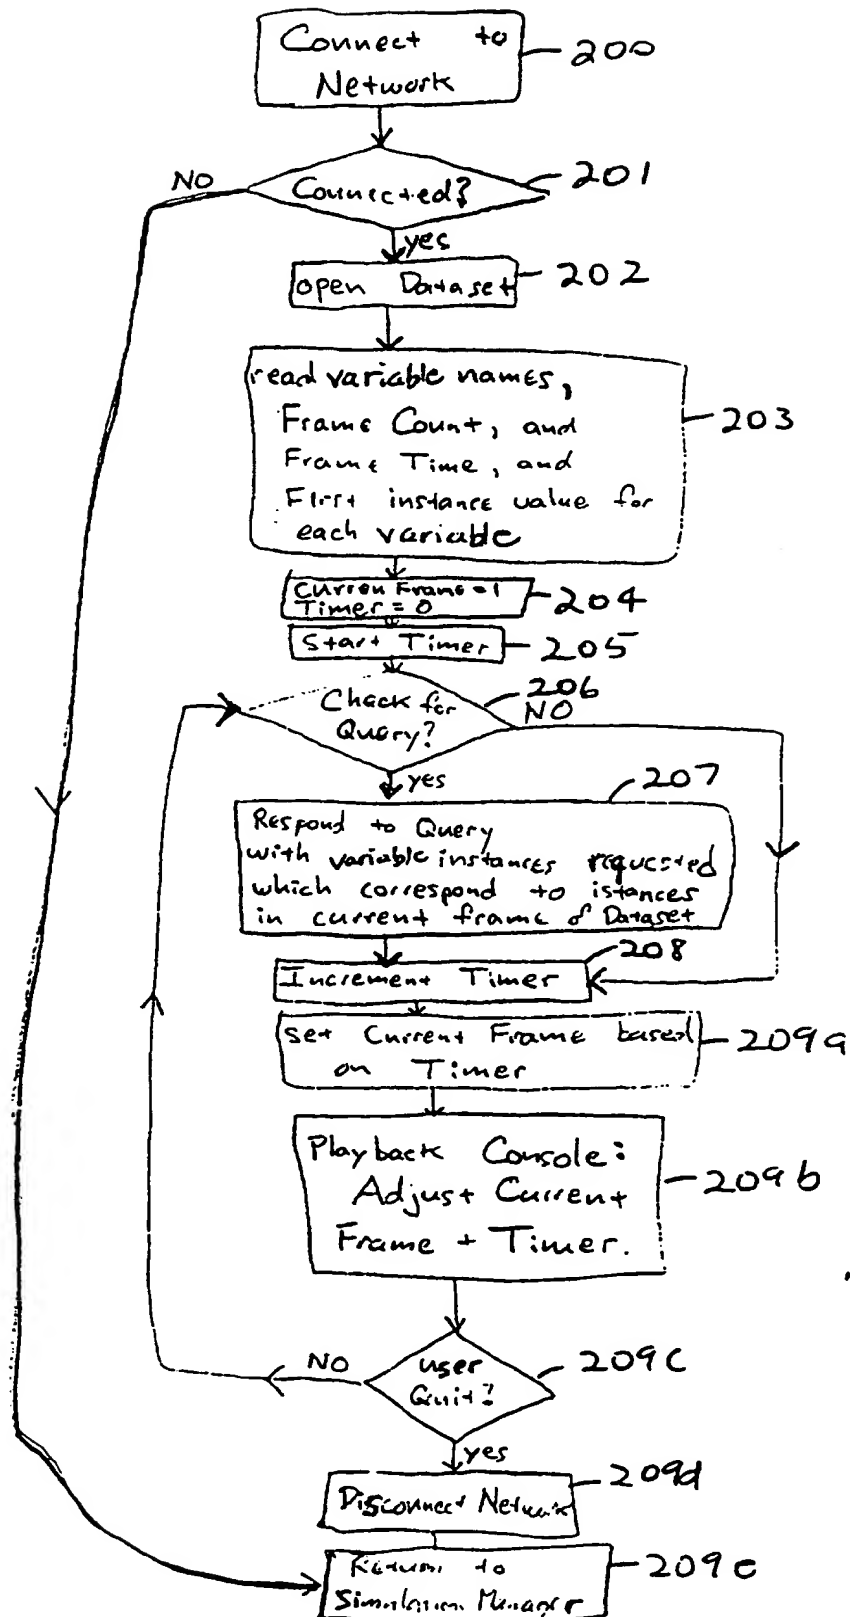 Connect to
Network
200
NO
Connected?
201
yes
open Dataset
202
read variable names,
Frame Count, and
Frame Time, and
First instance value for
each variable
203
Curren Frame=1
Timer = 0
204
Start Timer
205
206
Check for
Query?
NO
yes
207
Respond to Query
with variable instances requested
which correspond to istances
in current frame of Dataset
208
Increment Timer
set Current Frame based
on Timer
209a
Playback Console:
Adjust Current
Frame + Timer.
209b
NO
user
Quit?
209c
yes
209d
Disconnect Network
Return to
Simulation Manager
209e